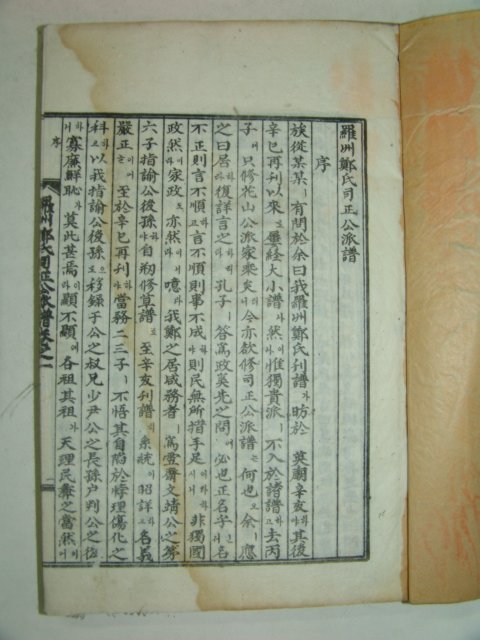 羅州鄭氏司正公派譜
序
族從某某ㅣ有問於余曰我羅州鄭氏刊譜가昉於 英廟辛亥하야其後
辛巳再刊以來로屢經大小譜라然이나惟獨貴派ㅣ不入於諸譜하고去丙
子에只修花山公派家乘矣러니今亦欲修司正公派譜는何也오余ㅣ應
之曰居하라復詳言之하리라孔子ㅣ答爲政奚先之問에必也正名乎신저名
不正則言不順하고言不順則事不成하야則民無所措手足이라하시니非獨國
政然이라家政도亦然이라噫라我鄭之居咸務者ㅣ爲雪齋文靖公之旁
六子指諭公後孫이라自刱修草譜로至辛亥刊譜히系統이昭詳하고名義
嚴正이러니至於辛巳再刊하야當務二三子ㅣ不悟其自陷於悖理傷化之
科하고以我指諭公後孫으로移錄于公之叔兄少尹公之長孫戶判公之后
하니寡廉鮮恥가莫此甚焉이라顯不顯에各祖其祖가天理民彛之當然이어
序
羅州鄭氏司正公派譜卷之一
一